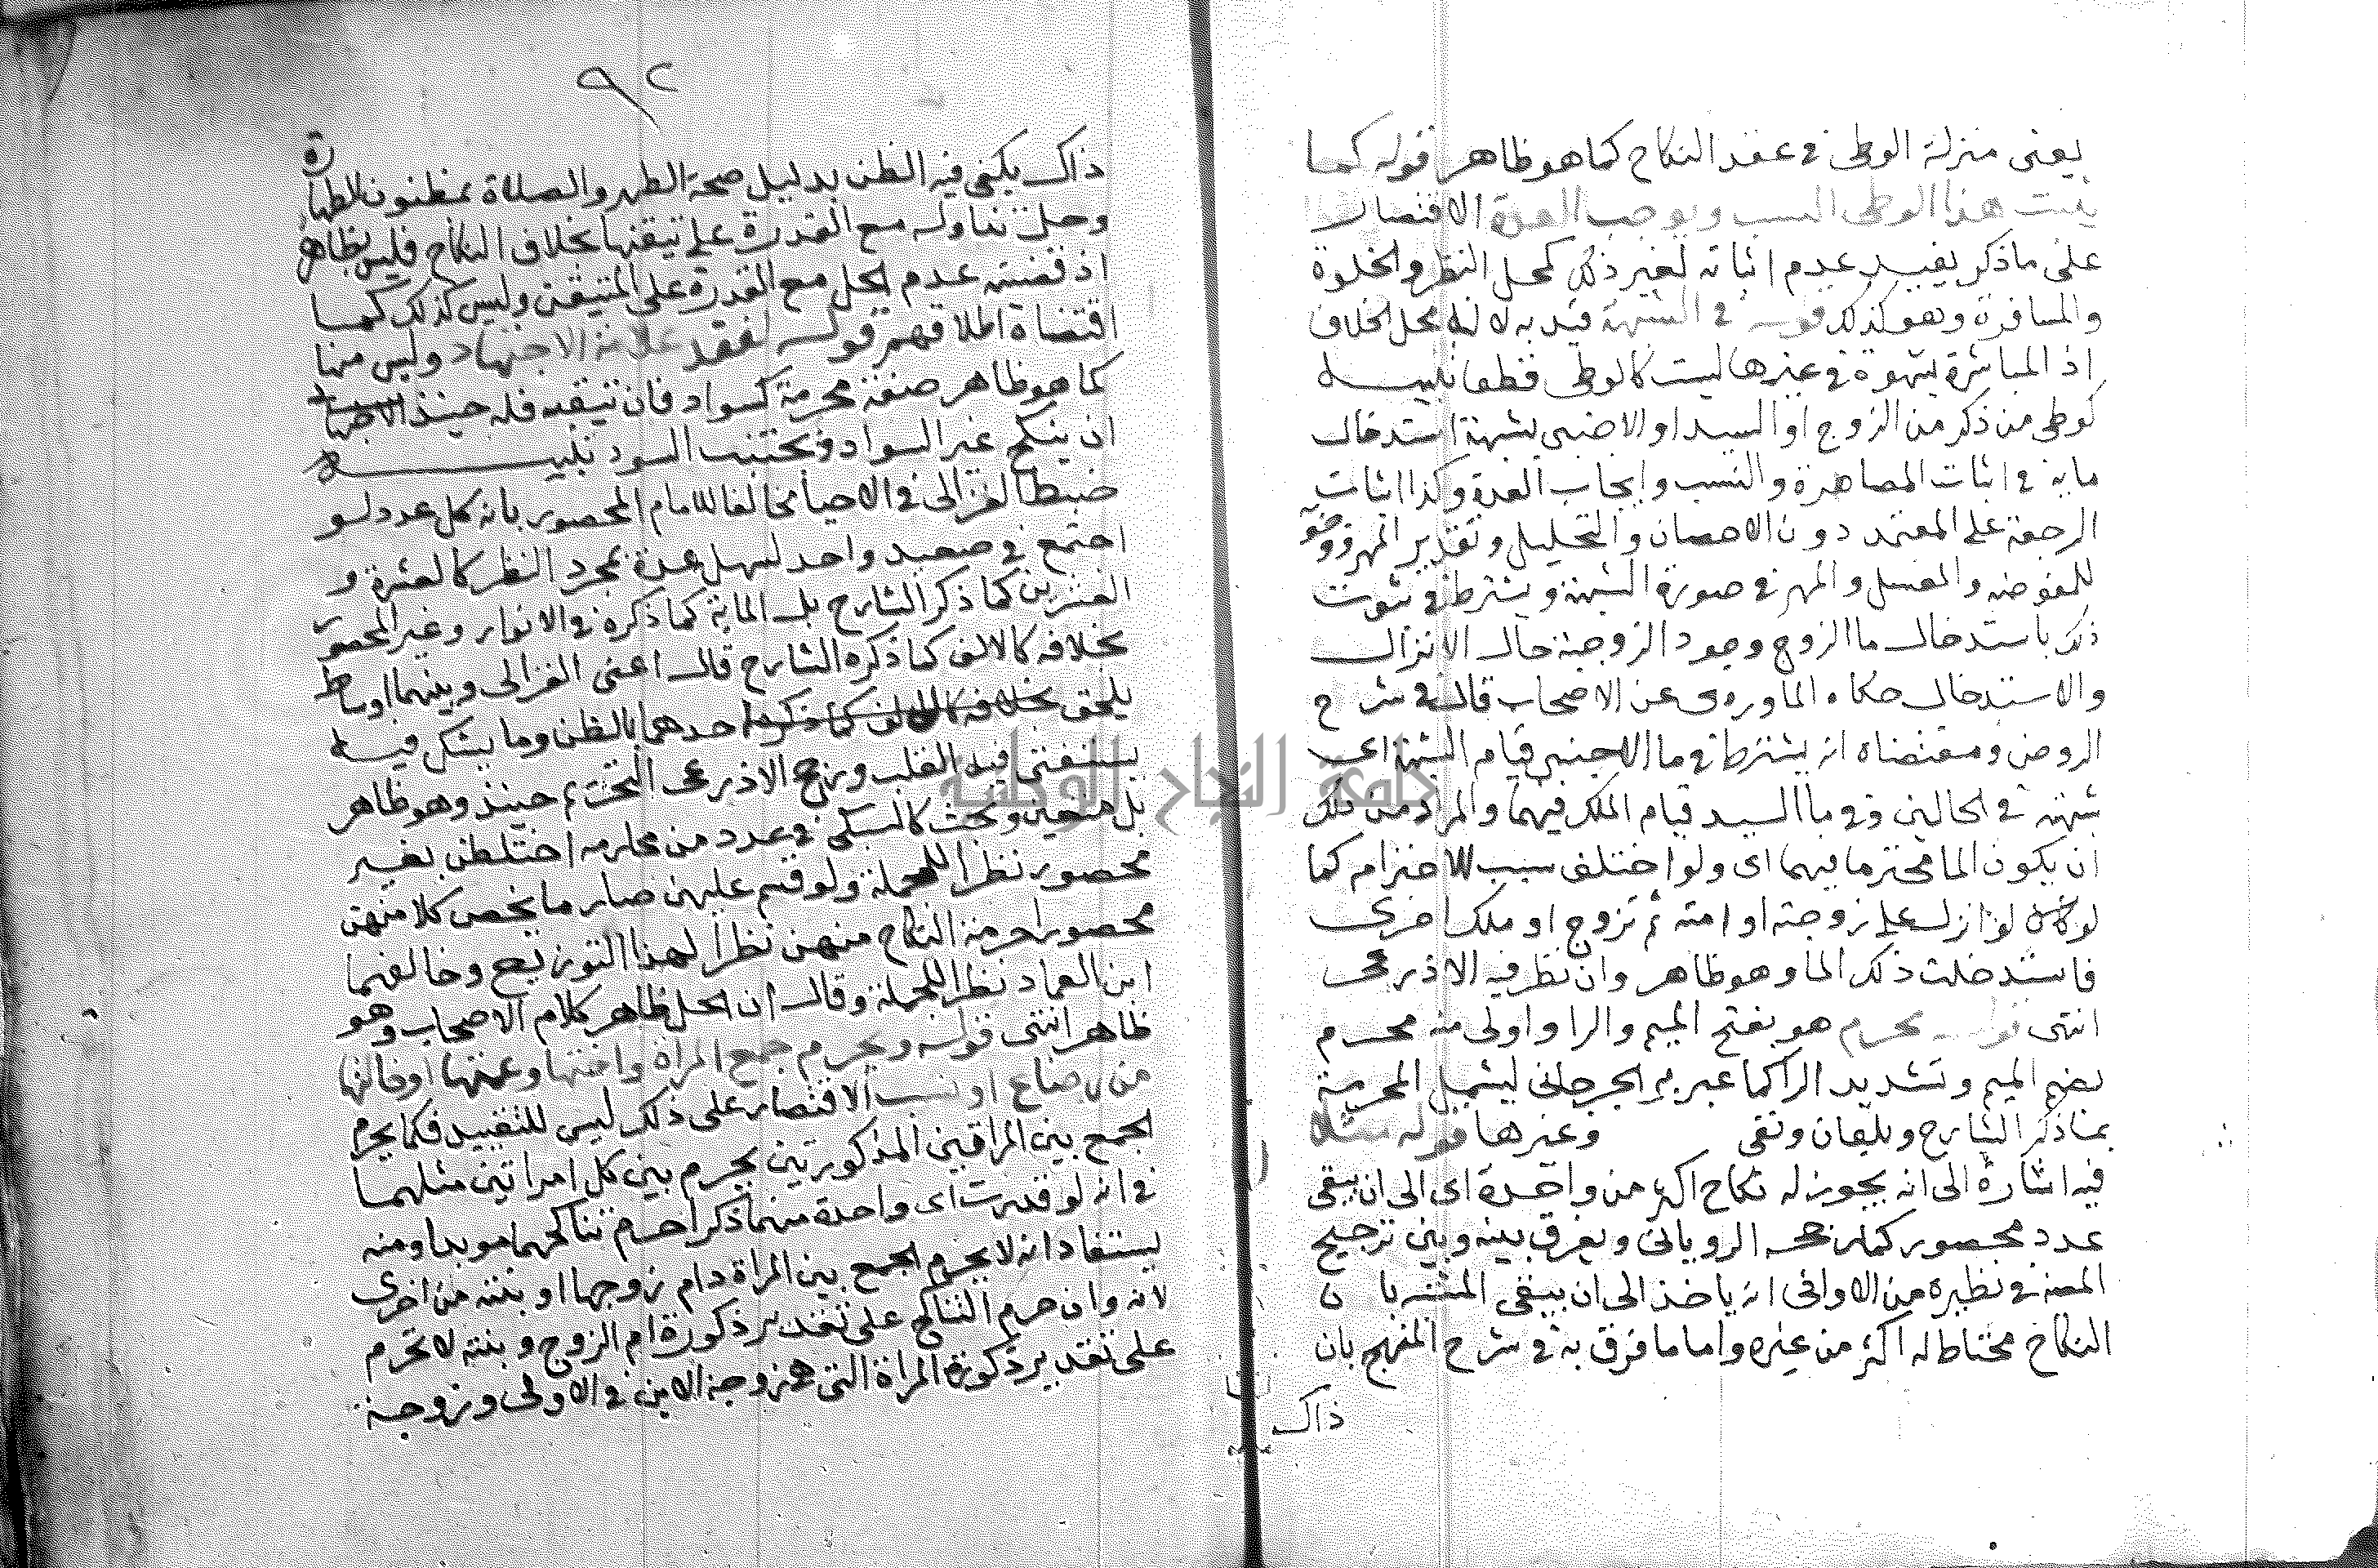 يعنى منزلة الوطى فى عقد النكاح كما هو ظاهر قوله كما
يثبت هذا الوطى النسب ويوجب العدة الاقتصار
على ما ذكر يفيد عدم اثباته لغير ذلك كحل النظر والخلوة
والمسافرة وهو كذلك قوله فى الشبهة قيد به لانه محل الخلاف
اذ المباشرة بشهوة فى غيرها ليست كالوطى قطعا تنبيه
كوطى من ذكر من الزوج او السيد او الاجنبى بشبهة استدخال
مايه فى اثبات المصاهرة والنسب وايجاب العدة وكذا اثبات
الرجعة على المعتمد دون الاحصان والتحليل وتقدير المهر
للمفوضه والغسل والمهر فى صورة الشبهة ويشترط فى ثبوت
ذلك باستدخال ما الزوج وجود الزوجية حال الانزال
والاستدخال حكاه الماوردى عن الاصحاب قال فى شرح
الروض ومقتضاه انه يشترط فى ما الاجنبى قيام الشبهة اى
شبهته فى الحالين وفى ما السيد قيام الملك فيهما والمراد من ذلك
ان يكون الما محترما فيهما اى ولو اختلف سبب الاحترام كما
لو كان لو انزل على زوجته او امته ثم تزوج او ملك اخرى
فاستدخلت ذلك الما وهو ظاهر وان نظر فيه الاذرعى
انتهى قوله محرم هو بفتح الميم والرا واولى منه محرم
بضم الميم وتشديد الرا كما عبر به الجرجانى ليشمل المحرمة
بما ذكر الشارح وبلعان ونفى وغيرها قوله مثلا
فيه اشارة الى انه يجوز له نكاح اكثر من واحدة اى الى ان يبقى
عدد محصور كما رجحه الرويانى ويفرق بينه وبين ترجيح
المصنف فى نظيره من الاوانى انه ياخذ الى ان يبقى المشتبه بان
النكاح محتاط له اكثر من غيره واما ما فرق به فى شرح المنهج بان
ذاك
٩٢
ذاك يكفى فيه الظن بدليل صحة الطهر والصلاة بمظنون الطهارة
وحل تناوله مع القدرة على تيقنها بخلاف النكاح فليس بظاهر
اذ قضيته عدم الحل مع القدرة على المتيقن وليس كذلك كما
اقتضاه اطلاقهم قوله لفقد علامة الاجتهاد وليس منها
كما هو ظاهر صفة محرمة كسواد فان تيقنه فله حينئذ
ان ينكح غير السواد ويجتنب السود تنبيه
ضبط الغزالى فى الاحيا مخالفا للامام المحصور بانه كل عدد لو
اجتمع فى صعيد واحد لسهل عده بمجرد النظر كالعشرة و
العشرين كما ذكر الشارح بل الماية كما ذكره فى الانوار وغير المحصور
بخلافه كالالف كما ذكره الشارح قال اعنى الغزالى وبينهما اوساط
يلحق بخلافه كالالف كما ذكره احدهما بالظن وما يشكل فيه
يستفتى فيه القلب ورجح الاذرعى التحريم حينئذ وهو ظاهر
بل متعين وبحث كالسبكى فى عدد من محارمه اختلطن بغير
محصور نظرا للجملة ولو قسم عليهن صار ما يخص كلا منهن
محصورا حرمة النكاح منهن نظرا لهذا التوزيع وخالفهما
ابن العماد نظرا للجملة وقال ان الحل ظاهر كلام الاصحاب وهو
ظاهر انتهى قوله ويحرم جمع المراة واختها وعمتها او خالتها
من رضاع او نسب الاقتصار على ذلك ليس للتقييد فكما يحرم
الجمع بين المراتين المذكورتين يحرم بين كل امراتين مثلهما
فى انه لو قدرت اى واحدة منهما ذكرا حرم تناكحهما مويدا ومنه
يستفاد انه لا يحرم الجمع بين المراة وام زوجها او بنته من اخرى
لانه وان حرم التناكح على تقدير ذكورة ام الزوج وبنته لا تحرم
على تقدير ذكورة المراة التى هى زوجة الابن فى الاولى وزوجة